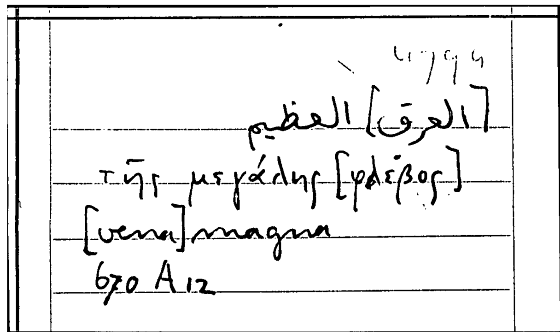 [العرق] العظيم
τῆς μεγάλης [φλέβος]
[vena] magna
670 A 12